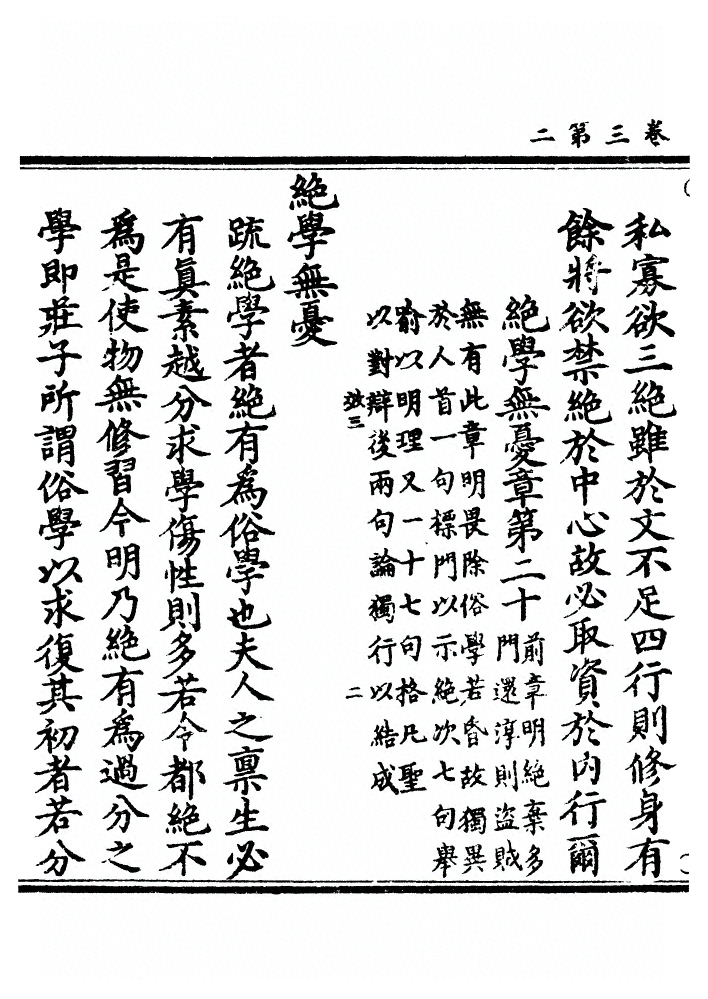 卷三第二
私寡欲三絕雖於文不足四行則修身有
餘將欲禁絕於中心故必取資於內行爾
絕學無憂章第二十
前章明絕棄多
門還淳則盜賊
無有此章明畏除俗學若昏故獨異
於人首一句標門以示絕次七句舉
喻以明理又一十七句格凡聖
以對辯後兩句論獨行以結成
二
效三
絕學無憂
疏絕學者絕有為俗學也夫人之禀生必
有真素越分求學傷性則多若令都絕不
為是使物無修習今明乃絕有為過分之
學即莊子所謂俗學以求復其初者若分